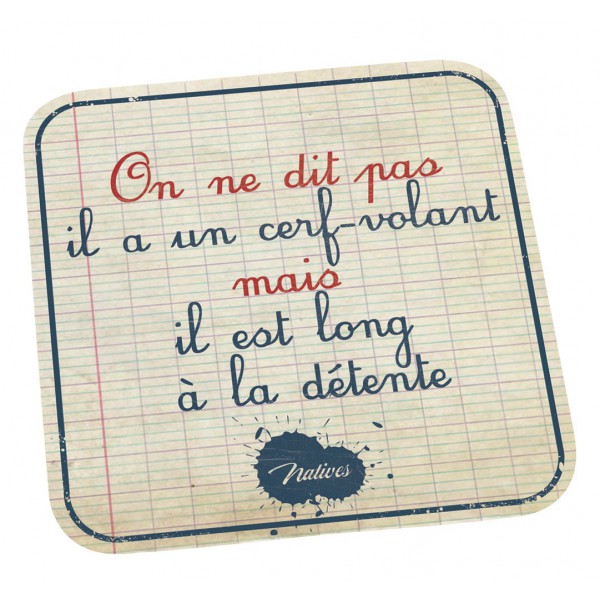 On ne dit pas
il a un cerf-volant
mais
il est long
à la détente
Natives